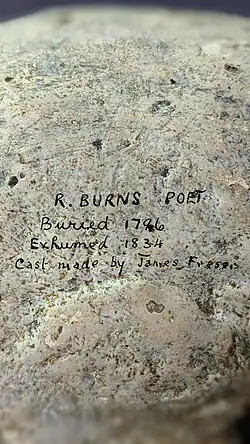 R. BURNS POET
Buried 1796
Exhumed 1834
Cast made by James